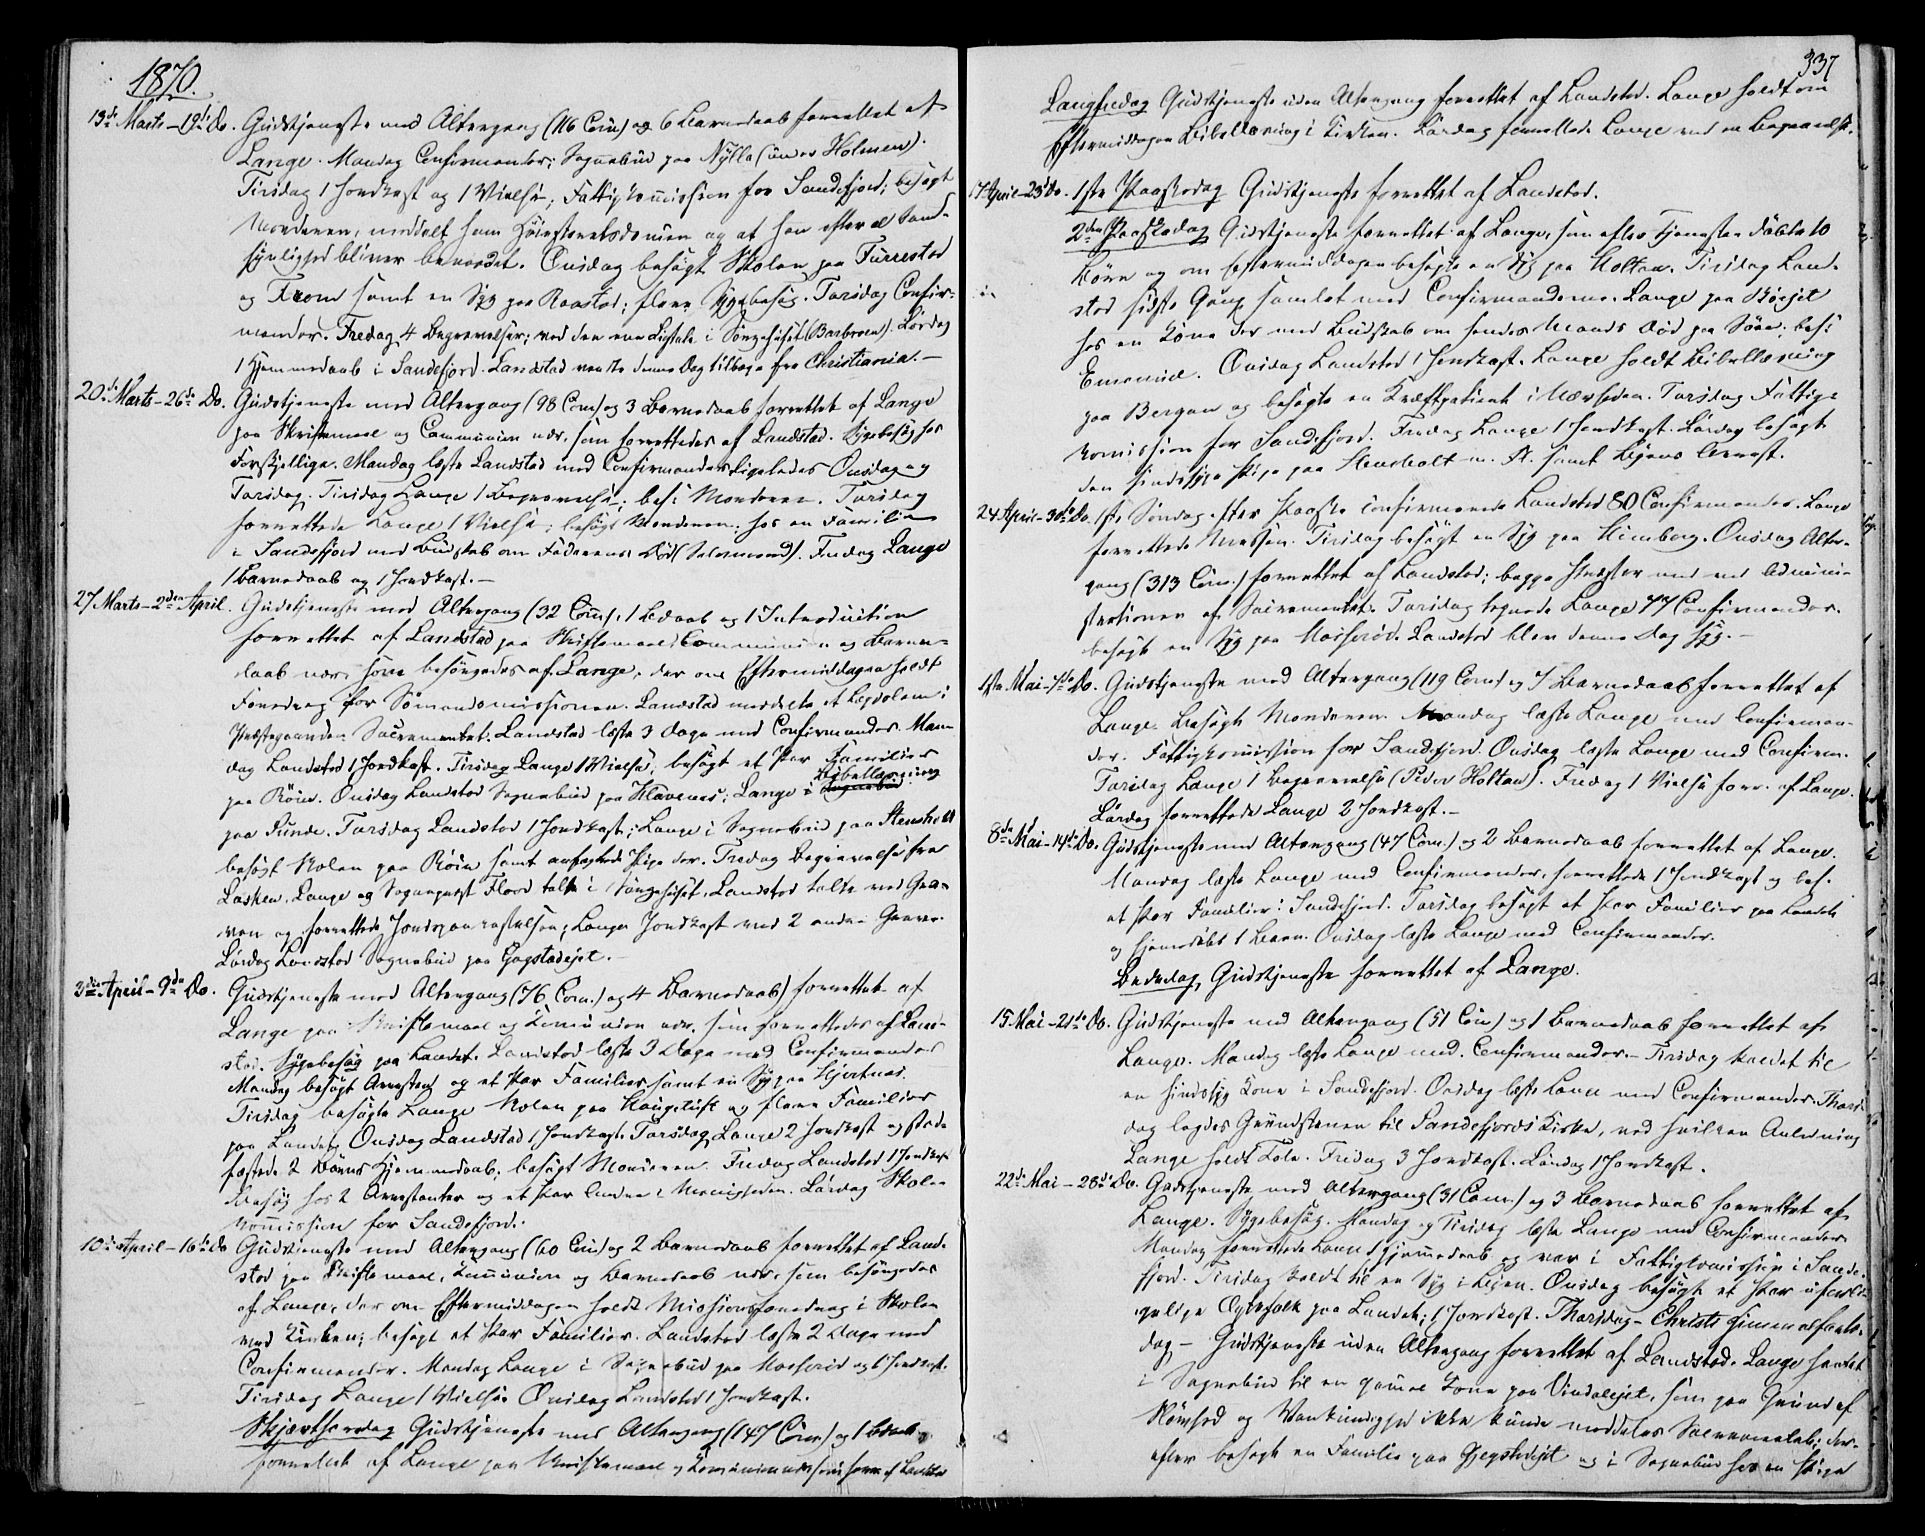 1870.
13de Marts–19de Do. Gudstjeneste med Altergang (116 Com) og 6 Barnedaab forrettet af
Lange. Mandag Confirmander; Sognebud paa Nylla (under Holmen).
Tirsdag 1 Jordkast og 1 Vielse; Fattigkommission for Sandefjord; besøgt
Morderen, meddelt ham Høiesteretsdommen og at han efter al Sand-
synlighed bliver benaadet. Onsdag besøgt Skolen paa Furrestad
og Fram samt en Syg paa Raastad; flere Sygebesøg. Torsdag Confir-
mander. Fredag 4 Begravelser; ved den ene Ligtale i Sørgehuset (Barbroen). Lørdag
1 Hjemmedaab i Sandefjord. Landstad vendte denne Dag tilbage fra Christiania.–
20de Marts–26de Do. Gudstjeneste med Altergang (98 Com) og 3 Barnedaab forrettet af Lange
paa Skriftemaal og Communion nær, som forrettedes af Landstad. Sygebesøg hos
Forskjellige. Mandag læste Landstad med Confirmander ligeledes Onsdag og
Torsdag. Tirsdag Lange 1 Begravelse; bes: Morderen. Torsdag
forrettede Lange 1 Vielse; besøgt Morderen; hos en Familie
i Sandefjord med Budskab om Faderens Død (Salomonsen). Fredag Lange
1 Barnedaab og 1 Jordkast.–
27 Marts–2den April. Gudstjeneste med Altergang (32 Com), 1 Bdaab og 1 Introduction
forrettet af Landstad paa Skriftemaal, Communion og Barne-
daab nær, som besørgedes af Lange, der om Eftermiddagen holdt
Foredrag for Sømandsmissionen. Landstad meddelte et Lægdslem i
Præstegaarden Sacramentet. Landstad læste 3 Dage med Confirmander. Man-
dag Landstad 1 Jordkast. Tirsdag Lange 1 Vielse; besøgt et Par Familier
paa Røin. Onsdag Landstad Sognebud paa Klavenes; Lange i Bibellæsning
paa Sunde. Torsdag Landstad 1 Jordkast; Lange i Sognebud paa Stensholt
besøgt Skolen paa Røin samt anfægtede Pige der. Fredag Begravelse fra
Lasken, Lange og Sognepræst Flood talte i Sørgehuset, Landstad talte ved Gra-
ven og forrettede Jordspaakastelsen; Lange Jordkast ved 2 andre Grave.
Lørdag Landstad Sognebud paa Gogstadejet.–
3die April–9de Do. Gudstjeneste med Altergang (76 Com.) og 4 Barnedaab forrettet af
Lange paa Skriftemaal og Communion nær, som forrettedes af Land-
stad. Sygebesøg paa Landet. Landstad læste 3 Dage med Confirmander
Mandag besøgt Arrestant og et Par Familier samt en Syg paa Hjertnæs.
Tirsdag besøgte Lange Skolen paa Haugtuft og flere Familier
paa Landet. Onsdag Landstad 1 Jordkast. Torsdag Lange 2 Jordkast og stad-
fæstede 2 Børns Hjemmedaab; besøgt Morderen. Fredag Landstad 1 Jordkast
Besøg hos 2 Arrestanter og et Par Andre i Menigheden. Lørdag Skole-
kommission for Sandefjord.
10de April–16de Do Gudstjeneste med Altergang (60 Com) og 2 Barnedaab forrettet af Land-
stad paa Skriftemaal, Communion og Barnedaab nær, som besørgedes
af Lange, der om Eftermiddagen holdt Missionsforedrag i Skolen
ved Kirken; besøgt et Par Familier. Landstad læste 2 Dage med
Confirmander. Mandag Lange i Sognebud paa Mosserød og 1 Jordkast.
Tirsdag Lange 1 Vielse Onsdag Landstad 1 Jordkast.
Skjærthorsdag Gudstjeneste med Altergang (147 Com) og 1 Bdaab
forrettet af Lange paa Skriftemaal og Communion nær som forr. af Landstad
337
Langfredag Gudstjeneste uden Altergang forrettet af Landstad. Lange holdt om
Eftermiddagen Bibellæsning i Kirken. Lørdag forrettede Lange ved en Begravelse.
17 April–23de Do. 1ste Paaskedag Gudstjeneste forrettet af Landstad.
2den Paaskedag Gudstjeneste forrettet af Lange, som efter Tjenesten døbte 10
Børn og om Eftermiddagen besøgte en Syg paa Holtan. Tirsdag Land-
stad sidste Gang samlet med Confirmanderne. Lange paa Børjet
hos en Kone der med Budskab om hendes Mands Død paa Søen; bes:
Emanuel. Onsdag Landstad 1 Jordkast. Lange holdt Bibellæsning
paa Bergan og besøgte en Kræftpatient i Nærheden. Torsdag Fattig-
kommission for Sandefjord. Fredag Lange 1 Jordkast. Lørdag besøgt
den sindssyge Pige paa Stensholt m. Fl. samt Byens Arrest.
24 April–30te Do. 1ste Søndag efter Paaske confirmerede Landstad 80 Confirmander. Lange
forrettede Messen. Tirsdag besøgt en Syg paa Himberg. Onsdag Alter-
gang (313 Com.) forrettet af Landstad; begge Præster med ved Admini-
strationen af Sacramentet. Torsdag tegnede Lange 77 Confirmander.
besøgt en Syg paa Mosserød. Landstad blev denne Dag syg.–
1ste Mai–7de Do. Gudstjeneste med Altergang (119 Com) og 7 Barnedaab forrettet af
Lange. Besøgt Morderen. Mandag læste Lange med Confirman-
der. Fattigkommission for Sandefjord. Onsdag læste Lange med Confirm.
Torsdag Lange 1 Begravelse (Peder Holtan). Fredag 1 Vielse forr. af Lange.
Lørdag forrettede Lange 2 Jordkast.–
8de Mai–14de Do. Gudstjeneste med Altergang (47 Com.) og 2 Barnedaab forrettet af Lange.
Mandag læste Lange med Confirmander, forrettede 1 Jordkast og bes.
et Par Familier i Sandefjord. Torsdag besøgt et Par Familier paa Landet
og hjemmedøbt 1 Barn. Onsdag læste Lange med Confirmander.
Bededag Gudstjeneste forrettet af Lange.
15 Mai–21de Do. Gudstjeneste med Altergang (51 Com) og 1 Barnedaab forrettet af
Lange. Mandag læste Lange med Confirmander.– Tirsdag kaldet til
en sindssyg Kone i Sandefjord. Onsdag læste Lange med Confirmander. Thors-
dag lagdes Grundstenen til Sandefjords Kirke, ved hvilken Anledning
Lange holdt Tale. Fredag 3 Jordkast. Lørdag 1 Jordkast.
22de Mai–28de Do. Gudstjeneste med Altergang (31 Com.) og 3 Barnedaab forrettet af
Lange. Sygebesøg. Mandag og Tirsdag læste Lange med Confirmander
Mandag forrettede Lange 1 Hjemmedaab og var i Fattigkommission i Sande-
fjord. Tirsdag kaldt til en Syg i Byen. Onsdag besøgt et Par uforli-
gelige Ægtefolk paa Landet; 1 Jordkast. Thorsdag – Christi Himmelfarts-
dag – Gudstjeneste uden Altergang forrettet af Landstad. Lange hentet
i Sognebud til en gammel Kone paa Vindalejet, som paa Grund af
Sløvhed og Vankundighed ikke kunde meddeles Sacramentet; der-
efter besøgt en Familie paa Gjegstadejet og i Sognebud hos en Pige